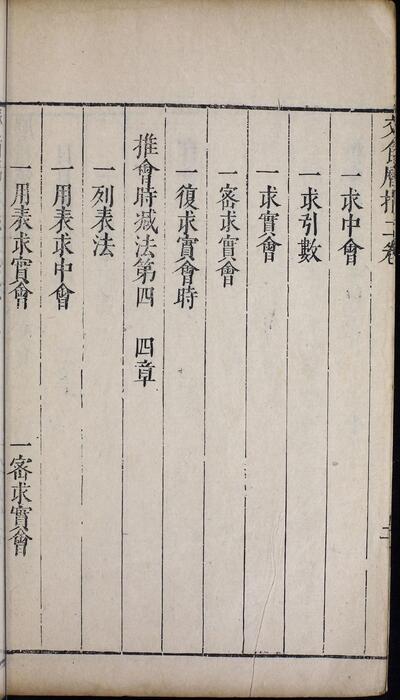 交食曆指二卷
一求中會
一求引數
一求實會
一密求實會
一復求實會時
推會時减法第四 四章
一列表法
一用表求中會
一用表求實會 一密求實會